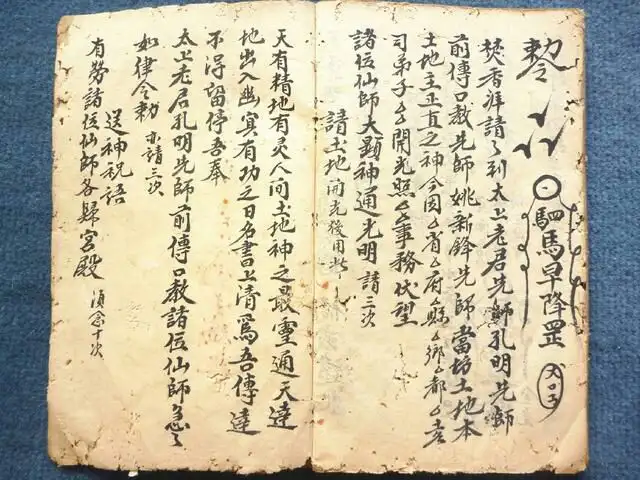 勅令
馹馬早降罡
焚香拜請請到太上老君先師孔明先師
前傳口教先師姚新鋒先師當坊土地本
土地主正直之神今因厶省厶府厶縣厶鄉厶都厶
司弟子厶厶開光照厶厶事務伏望
諸位仙師大顯神通光明請三次
請土地開光後用此
天有精地有灵人间土地神之最靈通天達
地出入幽冥有功之日名書上清爲吾傳達
不得留停吾奉
太上老君孔明先師前傳口教諸位仙師急急
如律令勅 亦請三次
送神祝語
有勞諸位仙師各歸宮殿 須念十次